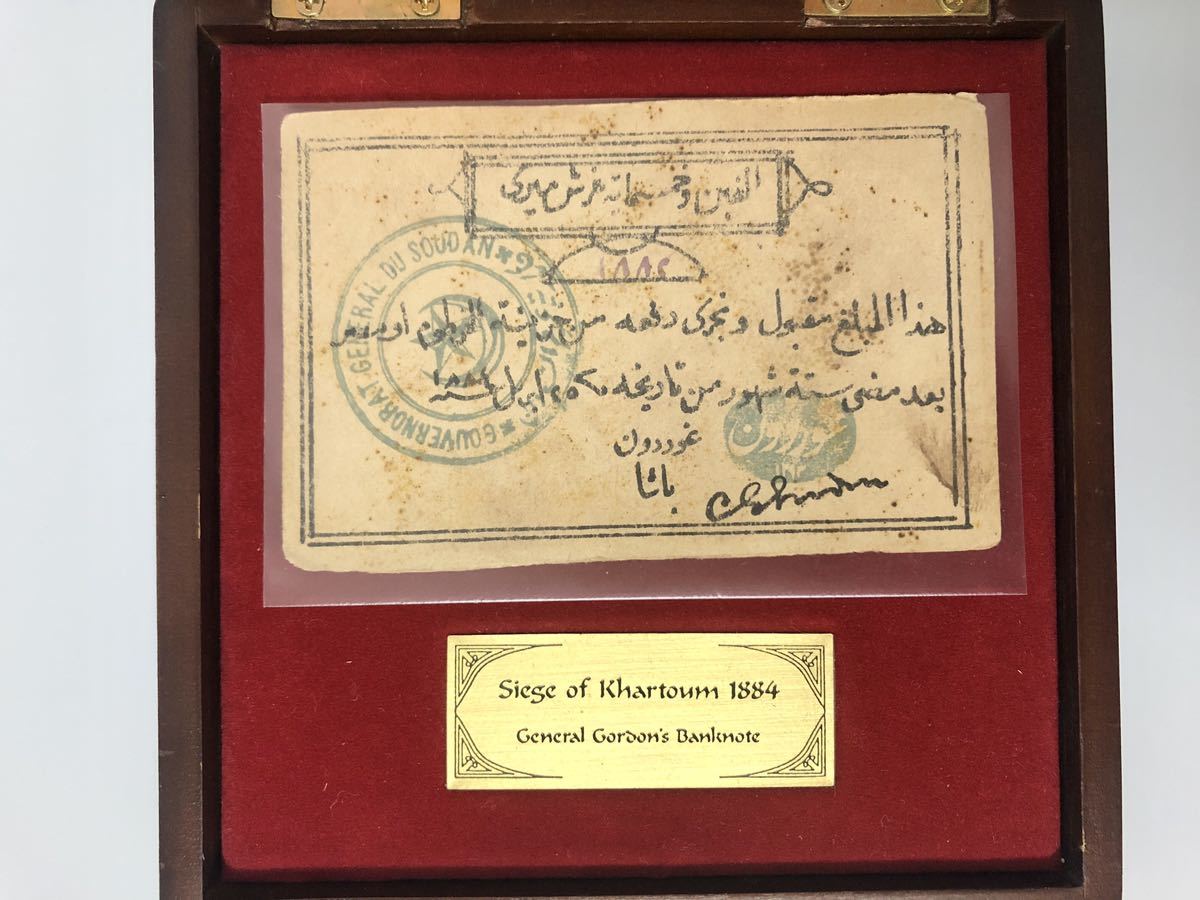 الفين وخمسماية غرش ميرى
١٨٨٤
هذا المبلغ مقبول ونجرى دفعه من خزينة الخرطوم او مصر
بعد مضى ستة شهور من تاريخه ٢٥ ابريل سنة ١٨٨٤
غوردون
باشا
GOUVERNORAT GENERAL DU SOUDAN
Siege of Khartoum 1884
General Gordon's Banknote